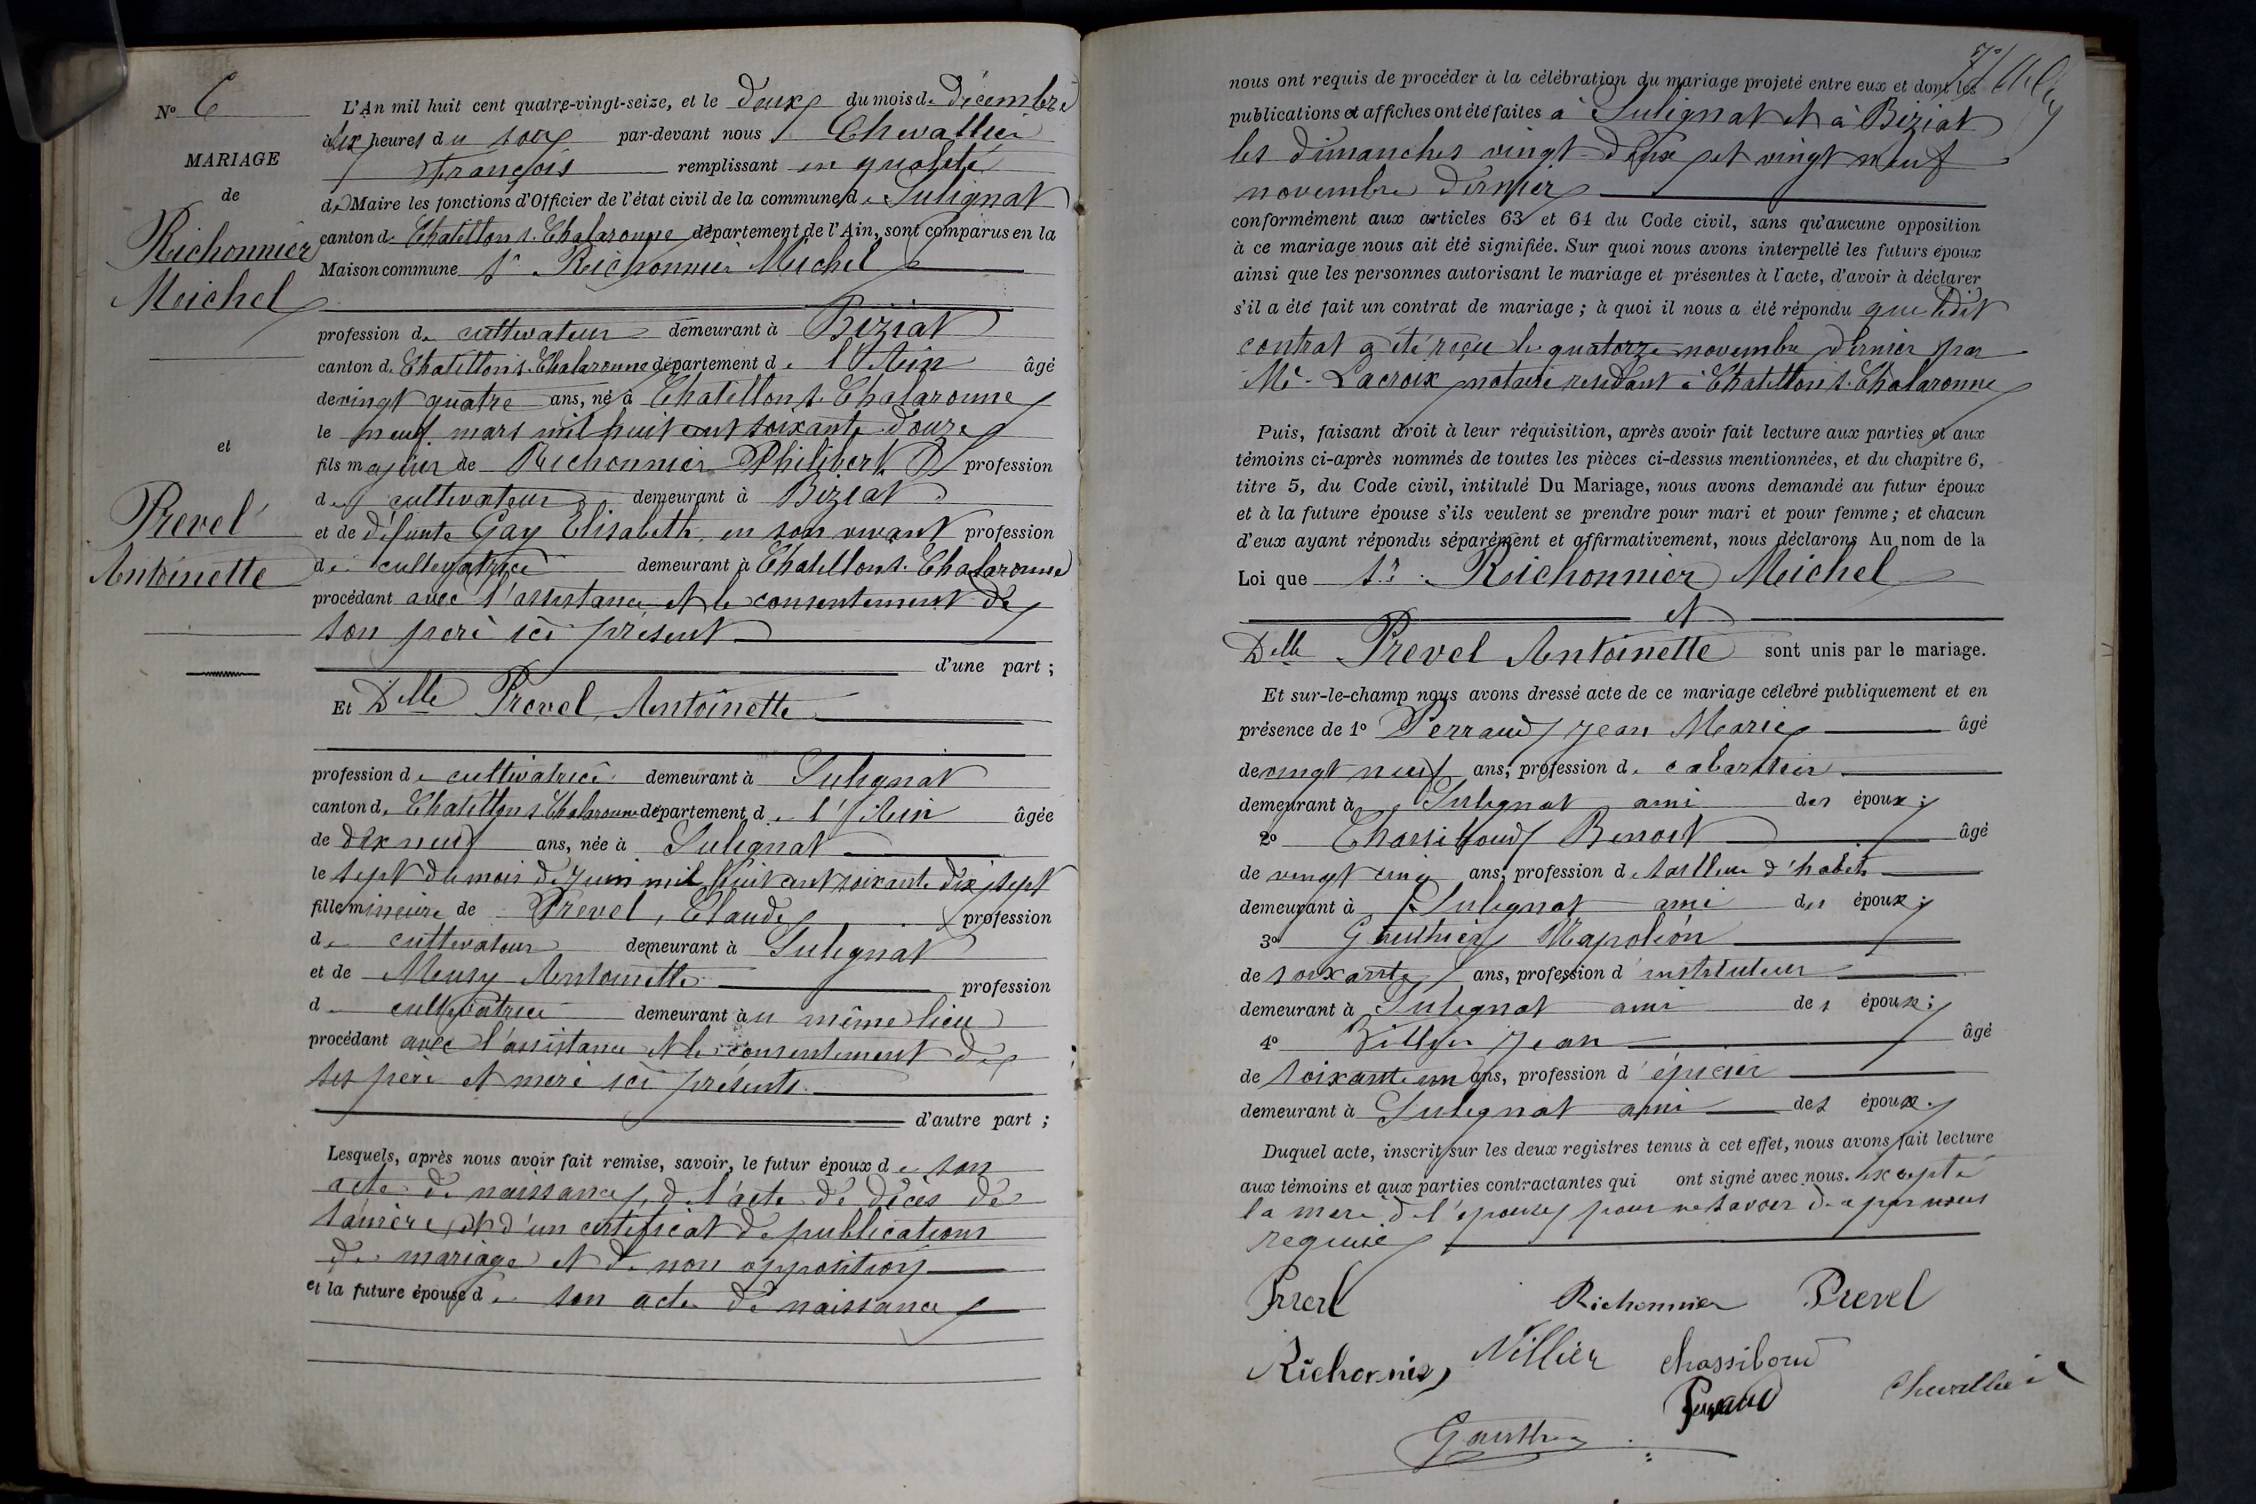 N° 6
MARIAGE
de
Richonnier
Michel
et
Prevel
Antoinette
L'An mil huit cent quatre-vingt-seize, et le deux du mois de décembre
à six heures du soir par-devant nous Chevallier
François remplissant en qualité
de Maire les fonctions d'Officier de l'état civil de la commune de Sulignat
canton de Chatillon s. Chalaronne département de l'Ain, sont comparus en la
Maison commune Sr Richonnier Michel
profession de cultivateur demeurant à Biziat
canton de Chatillon s. Chalaronne département de l'Ain âgé
de vingt quatre ans, né à Chatillon s. Chalaronne
le neuf mars mil huit cent soixante douze
fils majeur de Richonnier Philibert profession
de cultivateur demeurant à Biziat
et de défunte Gay Elisabeth, en son vivant profession
de cultivatrice demeurant à Chatillon s. Chalaronne
procédant avec l'assistance et le consentement de
son père ici présent
d'une part ;
Et Delle Prevel Antoinette
profession de cultivatrice demeurant à Sulignat
canton de Chatillon s. Chalaronne département de l'Ain âgée
de dix neuf ans, née à Sulignat
le sept du mois de juin mil huit cent soixante dix sept
fille mineure de Prevel, Claude profession
de cultivateur demeurant à Sulignat
et de Meury Antoinette profession
de cultivatrice demeurant au même lieu
procédant avec l'assistance et le consentement de
ses père et mère ici présents
d'autre part ;
Lesquels, après nous avoir fait remise, savoir, le futur époux de son
acte de naissance, de l'acte de décès de
sa mère, et d'un certificat de publications
de mariage et de non opposition
et la future épouse de son acte de naissance
nous ont requis de procéder à la célébration du mariage projeté entre eux et dont les
publications et affiches ont été faites à Sulignat et à Biziat
les dimanches vingt-deux et vingt neuf
novembre dernier
conformément aux articles 63 et 64 du Code civil, sans qu'aucune opposition
à ce mariage nous ait été signifiée. Sur quoi nous avons interpellé les futurs époux
ainsi que les personnes autorisant le mariage et présentes à l'acte, d'avoir à déclarer
s'il a été fait un contrat de mariage ; à quoi il nous a été répondu que ledit
contrat a été reçu le quatorze novembre dernier par
Me Lacroix notaire résidant à Chatillon s. Chalaronne
Puis, faisant droit à leur réquisition, après avoir fait lecture aux parties et aux
témoins ci-après nommés de toutes les pièces ci-dessus mentionnées, et du chapitre 6,
titre 5, du Code civil, intitulé Du Mariage, nous avons demandé au futur époux
et à la future épouse s'ils veulent se prendre pour mari et pour femme ; et chacun
d'eux ayant répondu séparément et affirmativement, nous déclarons Au nom de la
Loi que Sr Richonnier Michel
et
Delle Prevel Antoinette sont unis par le mariage.
Et sur-le-champ nous avons dressé acte de ce mariage célébré publiquement et en
présence de 1° Perraud Jean Marie âgé
de vingt neuf ans, profession de cabaretier
demeurant à Sulignat ami des époux ;
2° Chassiboud Benoit âgé
de vingt cinq ans, profession de tailleur d'habits
demeurant à Sulignat ami des époux ;
3° Gauthier Napoléon
de soixante ans, profession d'instituteur
demeurant à Sulignat ami des époux ;
4° Villier Jean âgé
de soixante un ans, profession d'épicier
demeurant à Sulignat ami des époux.
Duquel acte, inscrit sur les deux registres tenus à cet effet, nous avons fait lecture
aux témoins et aux parties contractantes qui ont signé avec nous. excepté
la mère de l'épouse pour ne savoir de a par nous
requise
Prevel Richonnier Prevel
Richonnier Villier Chassiboud
Perraud Chevallier
Gauthier